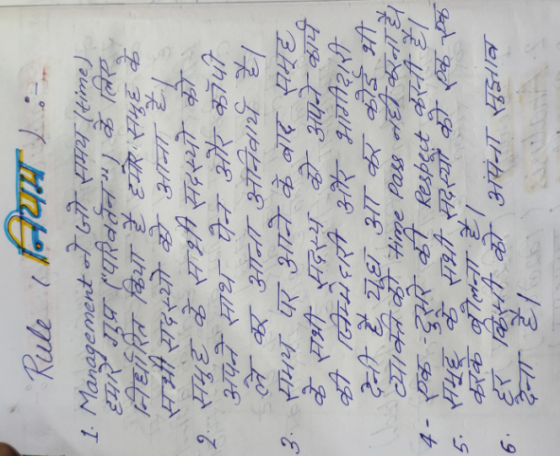 Rule ( नियम ) :-
1. Management ने जो समय (time)
हमारे ग्रुप ("परिवर्तन") के लिए
निर्धारित किया है हमारे समूह के
सभी सदस्यो को आना है।
2. समूह के सभी सदस्यो को
अपने साथ पेन और कॉपी
ले कर आना अनिवार्य है।
3. समय पर आने के बाद समूह
के सभी सदस्य को अपने कार्य
की जिम्मेदारी और भागीदारी
देनी है यहा आ कर कोई भी
व्यक्ति को time Pass नही करना है।
4- एक-दुसरे की Respect करनी है।
5. समूह के सभी सदस्यो को एक-एक
करके बोलना है।
6. हर किसी को अपना सुझाव
देना है।